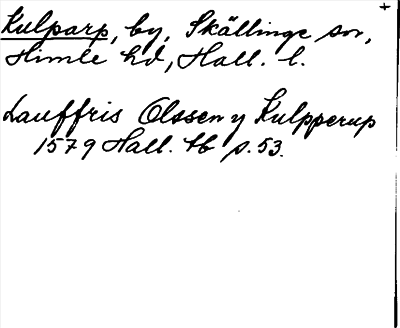 Kulparp, by, Skällinge sn,
Himle hd, Hall. l.
Lauffris Olssen y Kulpperup
1579 Hall. tb s. 53.